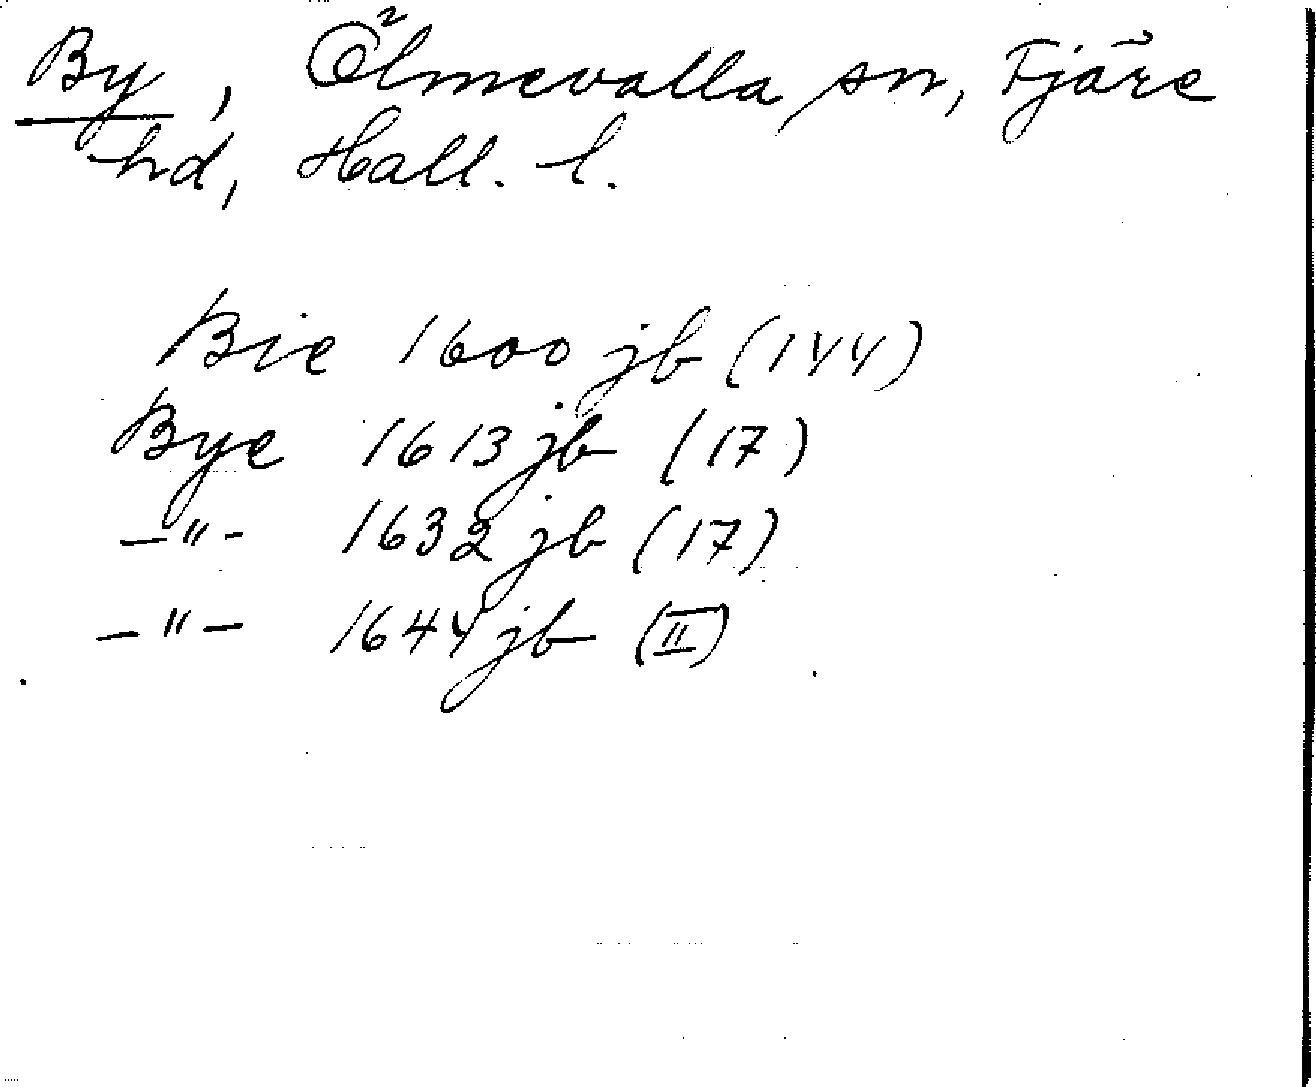 By, Ölmevalla sn, Fjäre
hd, Hall. l.
Bie 1600 jb (144)
Bye 1613 jb (17)
–"– 1632 jb (17)
–"– 1644 jb (II)